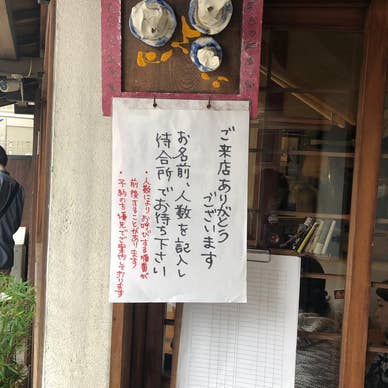 ご来店ありがとう
ございます
お名前、人数を記入し
待合所でお待ち下さい
・人数によりお呼びする順番が
前後することがあります
・予約の方優先でご案内しております